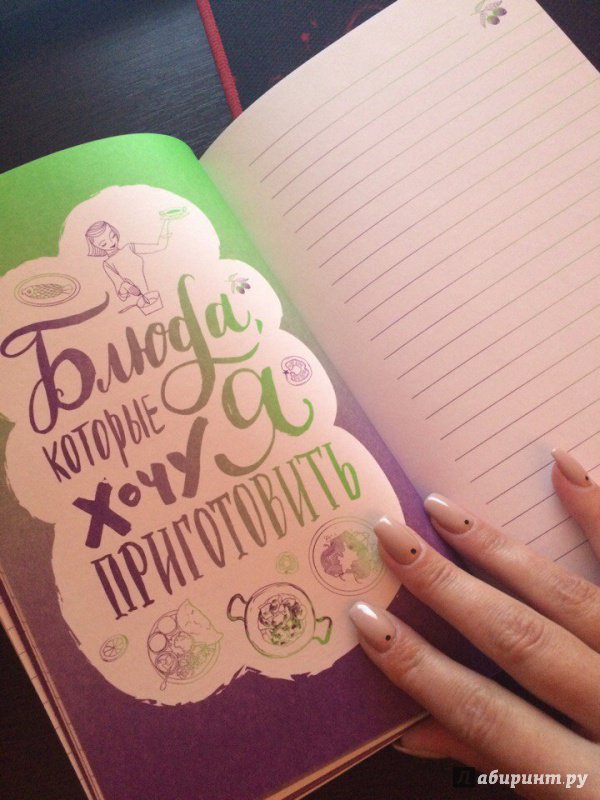 Блюда,
которые Я
хочу
приготовить
Лабиринт.ру